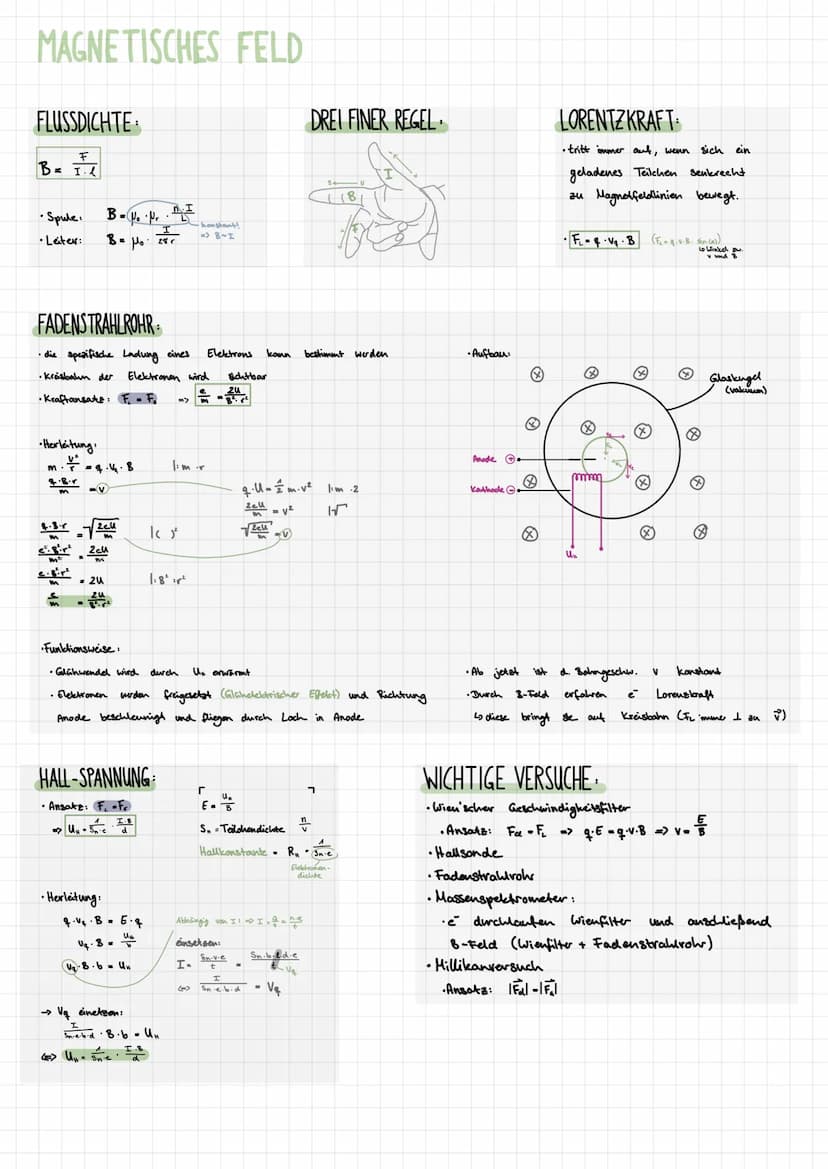 MAGNETISCHES FELD
FLUSSDICHTE:
B = F / (I · l)
· Spule: B = μ₀ · μᵣ · (n · I) / L
konstant!
=> B ~ I
· Leiter: B = μ₀ · I / (2π r)
DREI FINER REGEL:
I
B
F
LORENTZKRAFT:
· tritt immer auf, wenn sich ein
geladenes Teilchen senkrecht
zu Magnetfeldlinien bewegt.
· F_L = q · v_q · B (F_L = q · v · B · sin(α))
↳ Winkel zw.
v und B
FADENSTRAHLROHR:
· die spezifische Ladung eines Elektrons kann bestimmt werden
· Kreisbahn der Elektronen wird sichtbar
· Kraftansatz: F_L = F_z => e/m = 2U / (B² · r²)
· Herleitung:
m · v²/r = q · v_q · B |: m · r
(q · B · r)/m = v
q · U = 1/2 m · v² |: m · 2
2eU/m = v² |√
√(2eU/m) = v
(q · B · r)/m = √(2eU/m) |( )²
(e² · B² · r²)/m² = 2eU/m
(e · B² · r²)/m = 2U |: B² : r²
e/m = 2U / (B² · r²)
· Aufbau:
Glaskugel
(Vakuum)
Anode +
Kathode −
U_H
· Funktionsweise:
· Glühwendel wird durch U_H erwärmt
· Elektronen werden freigesetzt (Glühelektrischer Effekt) und Richtung
Anode beschleunigt und fliegen durch Loch in Anode
· Ab jetzt ist d. Bahngeschw. v konstant
· Durch B-Feld erfahren e⁻ Lorenzkraft
↳ diese bringt sie auf Kreisbahn (F_L immer ⊥ zu v⃗)
HALL-SPANNUNG:
· Ansatz: F_L = F_E
=> U_H = 1/(S_n · e) · (I · B)/d
E = U_H / B
S_n = Teilchendichte n/V
Hallkonstante = R_H = 1/(S_n · e)
Elektronen-
dichte
· Herleitung:
q · v_q · B = E · q
v_q · B = U_H / b
v_q · B · b = U_H
Abhängig von I! => I = Q/t = (n · e)/t
einsetzen:
I = (S_n · V · e)/t = (S_n · b · l · d · e)/t
v_q
<=> I / (S_n · e · b · d) = v_q
→ v_q einsetzen:
I / (S_n · e · b · d) · B · b = U_H
<=> U_H = 1/(S_n · e) · (I · B)/d
WICHTIGE VERSUCHE:
· Wien'scher Geschwindigkeitsfilter
· Ansatz: F_el = F_L => q · E = q · v · B => v = E/B
· Hallsonde
· Fadenstrahlrohr
· Massenspektrometer:
· e⁻ durchlaufen Wienfilter und anschließend
B-Feld (Wienfilter + Fadenstrahlrohr)
· Millikanversuch
· Ansatz: |F⃗_el| = |F⃗_G|